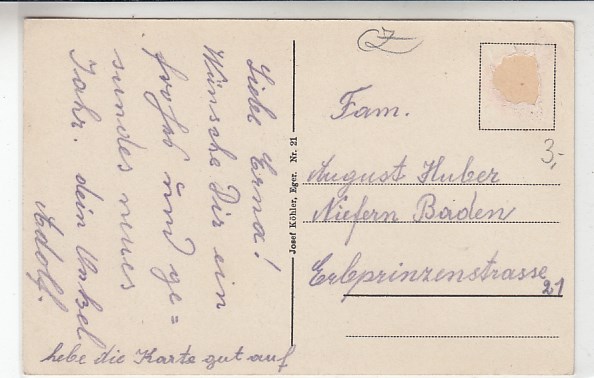 Liebe Erna!
Wünsche Dir ein
frohes und ge=
sundes neues
Jahr. dein Onkel
Adolf.
hebe die Karte gut auf
Josef Köhler, Eger. Nr. 21
Fam.
August Huber
Niefern Baden
Erbprinzenstrasse
21
3,-